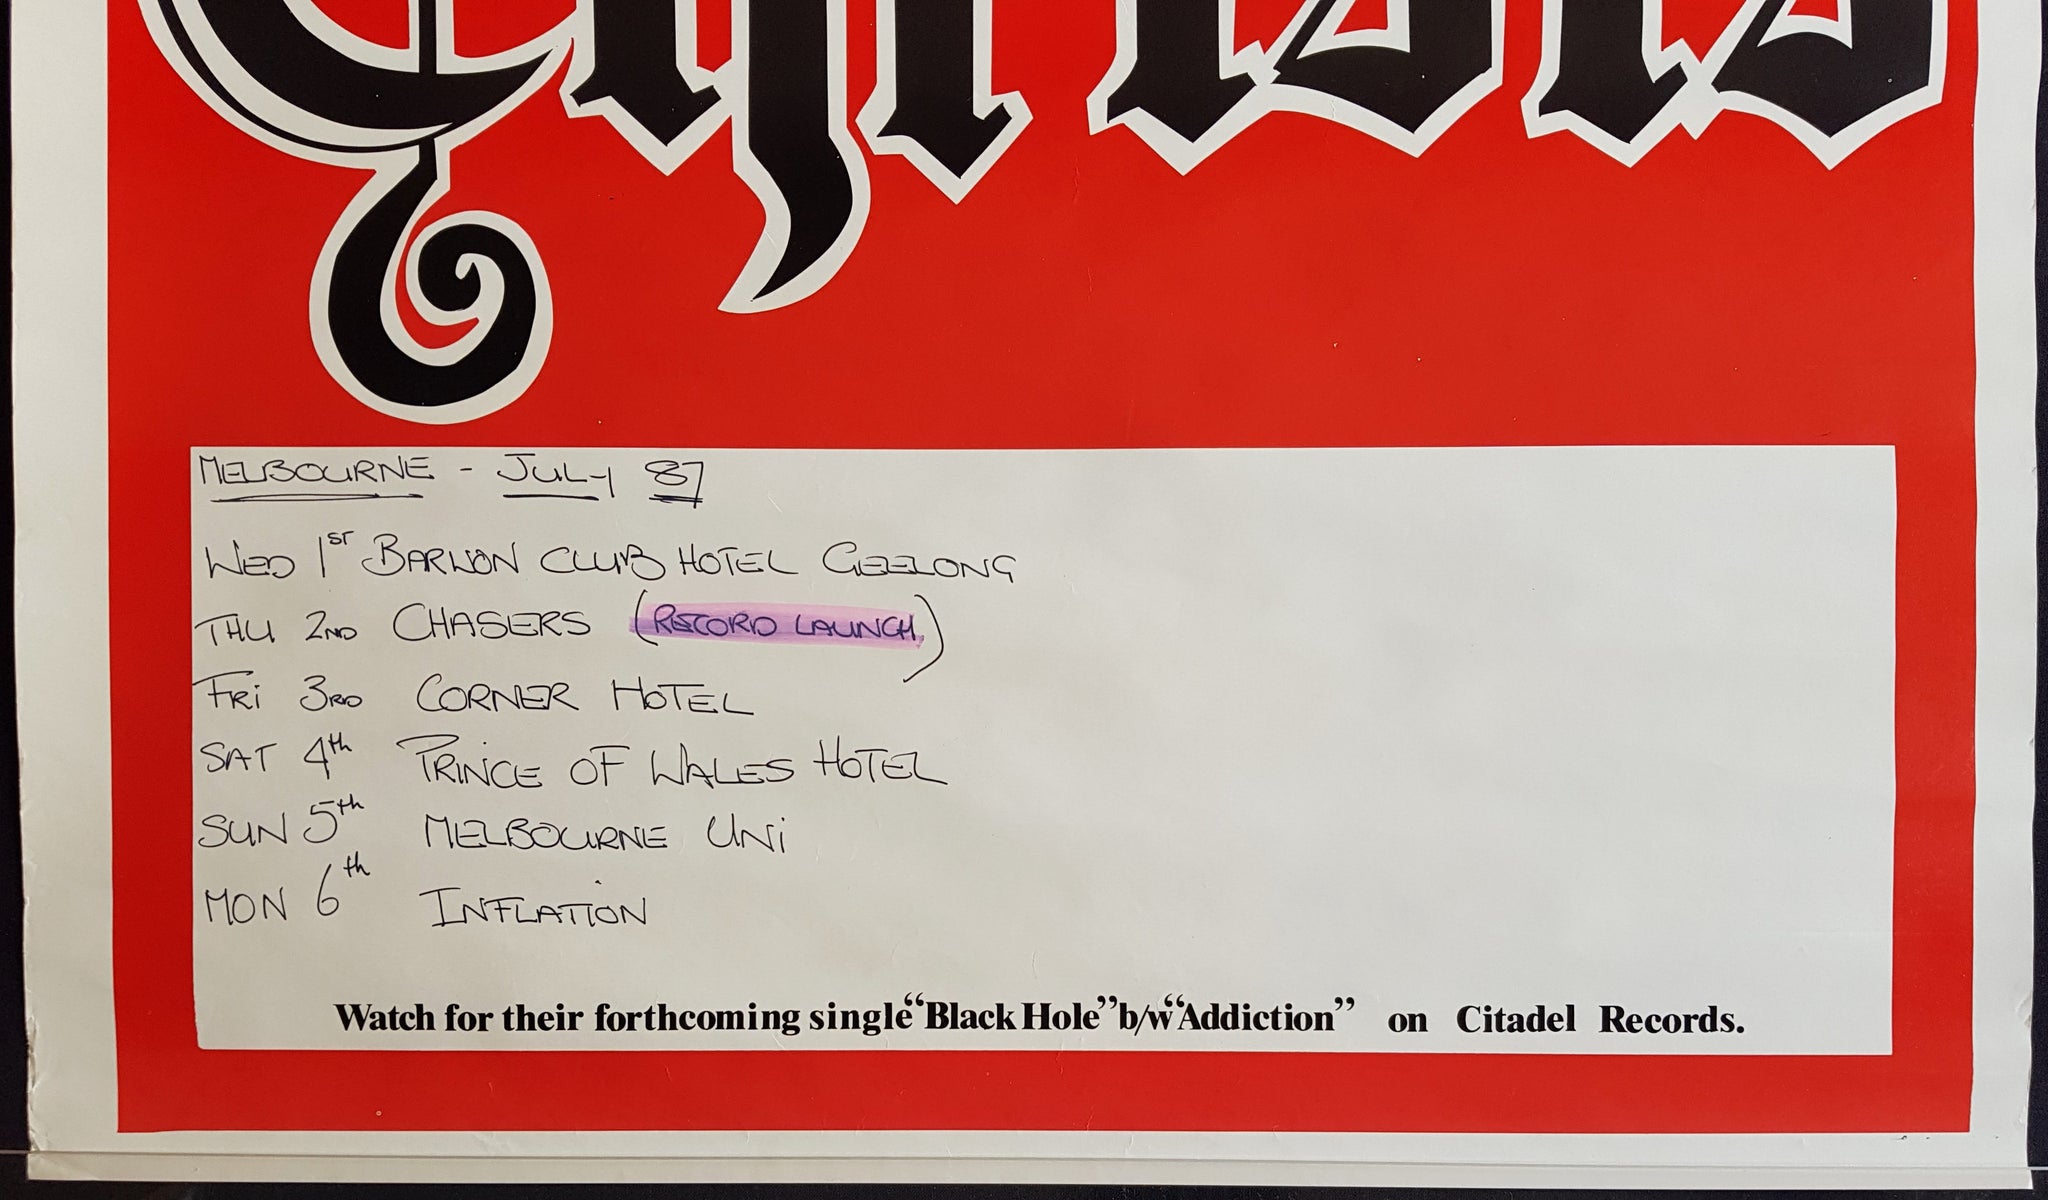 MELBOURNE - JULY 87
WED 1ST BARWON CLUB HOTEL GEELONG
THU 2ND CHASERS (RECORD LAUNCH)
FRi 3RD CORNER HOTEL
SAT 4th PRiNCE OF WALES HOTEL
SUN 5th MELBOURNE UNi
MON 6th INFLATiON
Watch for their forthcoming single “Black Hole” b/w “Addiction” on Citadel Records.